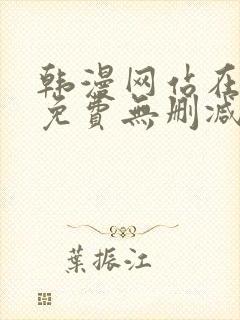 韩漫网站在
免費無删减
葉振江